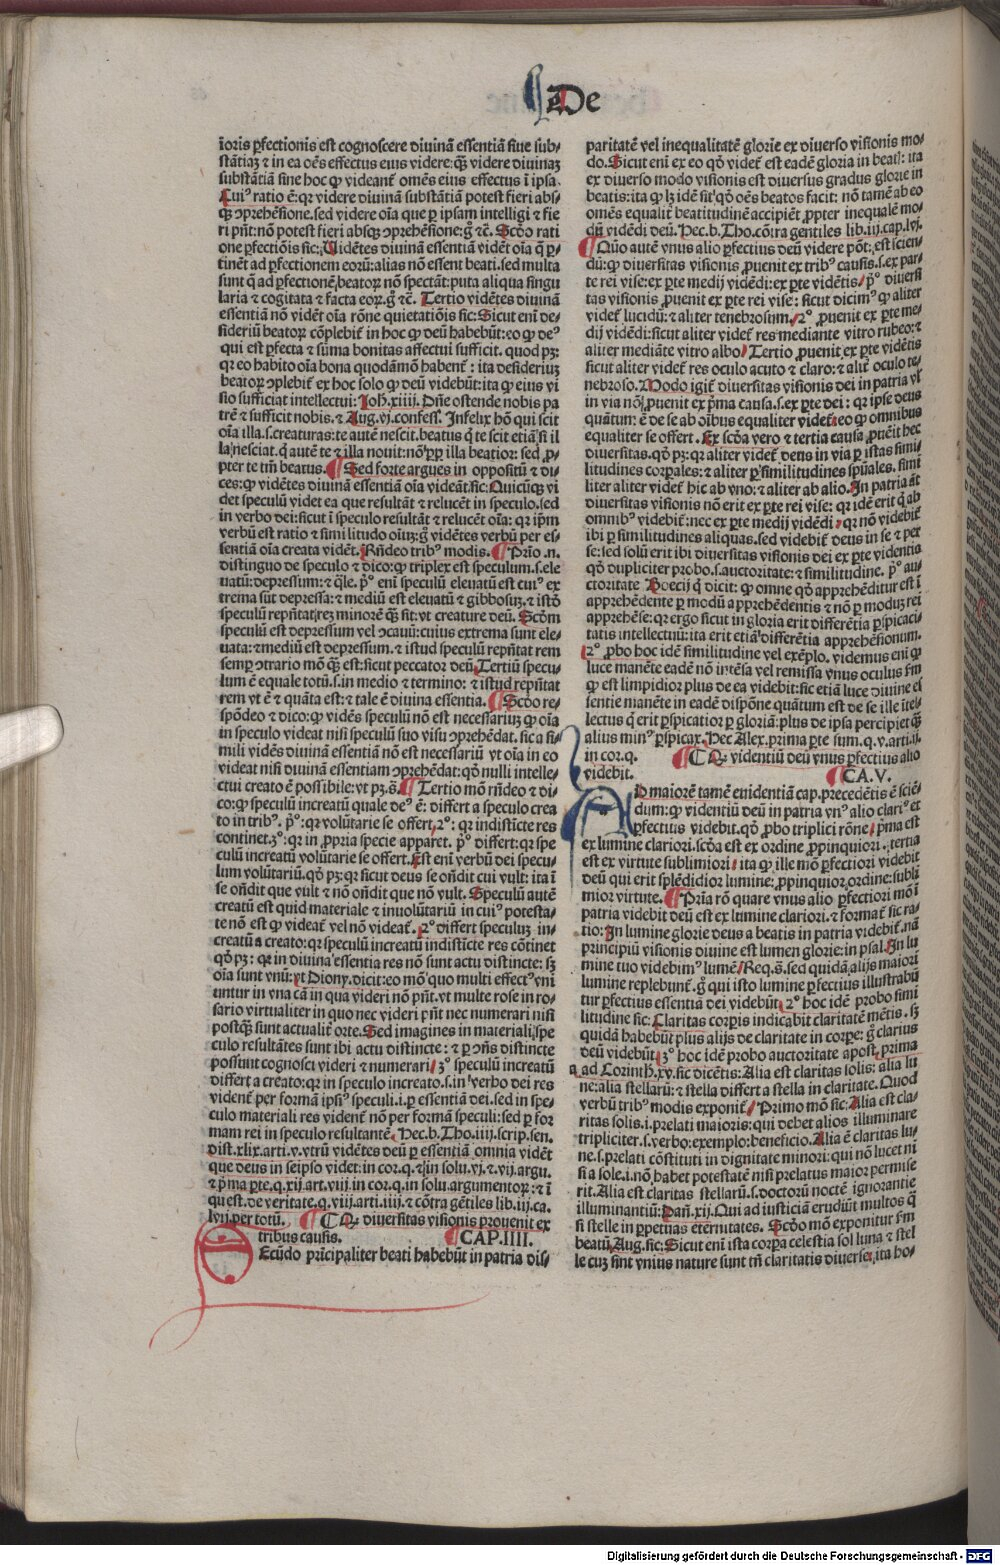 De
ĩoris ꝑfectionis est cognoscere diuinã essentiã siue sub⸗
stãtiaꝫ ⁊ in ea oẽs effectus eius videre: q̃ꝫ videre diuinaꝫ
substãtiã sine hoc ꝙ videant̃ omẽs eius effectus ĩ ipsa.
Cuiꝰ ratio ẽ: qꝛ videre diuinã substãtiã potest fieri abs⸗
qꝫ ꝯprehẽsione. sed videre oĩa que ꝑ ipsam intelligi ⁊ fie
ri pñt: nõ potest fieri absqꝫ ꝯprehẽsione: g̊ ⁊c̃. Scðo rati
one ꝑfectiõis sic: Uidẽtes diuinã essentiã vidẽt oĩa q̃ ꝑ⸗
tinẽt ad ꝑfectionem eorũ: alias nõ essent beati. sed multa
sunt q̃ ad ꝑfectionẽ beatoꝝ nõ spectãt: puta aliqua singu
laria ⁊ cogitata ⁊ facta eoꝝ. g̊ ⁊c̃. Tertio vidẽtes diuinã
essentiã nõ vidẽt oĩa rõne quietatiõis sic: Sicut eni de⸗
sideriũ beatoꝝ cõplebit̃ in hoc ꝙ deũ habebũt: eo ꝙ deꝰ
qui est ꝑfecta ⁊ sũma bonitas affectui sufficit. quod pꝫ:
qꝛ eo habito oĩa bona quodãmõ habent̃ : ita desideriuꝫ
beatoꝝ ꝯplebit̃ ex hoc solo ꝙ deũ videbũt: ita ꝙ eius vi
sio sufficiat intellectui: Joh. xiiii. Dñe ostende nobis pa
trẽ ⁊ sufficit nobis. ⁊ Aug. vj. confess. Infelix hõ qui scit
oĩa illa. s. creaturas: te autẽ nescit. beatus q̃ te scit etiã si il
la nesciat. q̃ autẽ te ⁊ illa nouit: nõ ꝓp̃ illa beatior: sed ꝓ⸗
pter te tm̃ beatus. Sed forte argues in oppositũ ⁊ di⸗
ces: ꝙ vidẽtes diuinã essentiã oĩa videãt. sic: Quicũqꝫ vi
det speculũ videt ea que resultãt ⁊ relucẽt in speculo. sed
in verbo dei: sicut ĩ speculo resultãt ⁊ relucẽt oĩa: qꝛ ip̃m
verbũ est ratio ⁊ similitudo oĩuꝫ: g̊ vidẽtes verbũ per es⸗
sentiã oĩa creata vidẽt. Rñdeo tribꝰ modis. Prĩo .n.
distinguo de speculo ⁊ dico: ꝙ triplex est speculum. s. ele
uatũ: depressum: ⁊ q̃le. p̃ꝰ eni speculũ eleuatũ est cuiꝰ ex
trema sũt depressa: ⁊ mediũ est eleuatũ ⁊ gibbosuꝫ. ⁊ istð
speculũ rep̃ñtat̃ rez minorẽ q̃ꝫ sit: vt creature deũ. Scðm
speculũ est depressum vel ꝯcauũ: cuius extrema sunt ele⸗
uata: ⁊ mediũ est depressum. ⁊ istud speculũ rep̃ñtat rem
semp̃ ꝯtrario mõ q̃ꝫ est: sicut peccator deũ. Tertiũ specu⸗
lum ẽ equale totũ. s. in medio ⁊ termino: ⁊ istud rep̃ñtat
rem vt ẽ ⁊ quãta est: ⁊ tale ẽ diuina essentia. Scðo re⸗
spõdeo ⁊ dico: ꝙ vidẽs speculũ nõ est necessariuꝫ ꝙ oĩa
in speculo videat nisi speculũ suo visu ꝯprehẽdat. sic a si⸗
mili vidẽs diuinã essentiã nõ est necessariũ vt oĩa in eo
videat nisi diuinã essentiam ꝯprehẽdat: qð nulli intelle⸗
ctui creato ẽ possibile: vt pꝫ. s̃. Tertio mõ rñdeo ⁊ di⸗
co: ꝙ speculũ increatũ quale deꝰ ẽ: differt a speculo crea
to in tribꝰ. p̃ꝰ: qꝛ volũtarie se offert. 2ꝰ: qꝛ indistĩcte res
continet. 3ꝰ: qꝛ in ꝓpria specie apparet. p̃ꝰ differt: qꝛ spe
culũ increatũ volũtarie se offert. Est eni verbũ dei specu⸗
lum volũtariũ. qð pꝫ: qꝛ sicut deus se oñdit cui vult: ita ĩ
se oñdit que vult ⁊ nõ oñdit que nõ vult. Speculũ autẽ
creatũ est quid materiale ⁊ inuolũtariũ in cuiꝰ potesta⸗
te nõ est ꝙ videat̃ vel nõ videat̃. 2ꝰ differt speculuꝫ in⸗
creatũ a creato: qꝛ speculũ increatũ indistĩcte res cõtinet
qð pꝫ: qꝛ in diuina essentia res nõ sunt actu distincte: sꝫ
oĩa sunt vnũ: vt Diony. dicit: eo mõ quo multi effectꝰ vni
untur in vna cã in qua videri nõ pñt. vt multe rose in ro⸗
sario virtualiter in quo nec videri pñt nec numerari nisi
postq̃ꝫ sunt actualit̃ orte. Sed imagines in materiali spe
culo resultãtes sunt ibi actu distincte : ⁊ ꝑ ꝯñs distincte
possunt cognosci videri ⁊ numerari. 3ꝰ speculũ increatũ
differt a creato: qꝛ in speculo increato. s. in verbo dei res
vident̃ per formã ipsiꝰ speculi. i. ꝑ essentiã dei. sed in spe⸗
culo materiali res vident̃ nõ per formã speculi: sed ꝑ for
mam rei in speculo resultantẽ. Hec. b. Tho. iiij. scrip. sen.
dist. xlix. arti. v. vtrũ vidẽtes deũ ꝑ essentiã omnia vidẽt
que deus in seipso videt: in cor. q. ⁊ in solu. vj. ⁊ vij. argu.
⁊ p̃ma ꝑte. q. xij. art. viij. in cor. q. in solu. argumentoꝝ: ⁊ ĩ
quest. de veritate. q. viij. arti. iiij. ⁊ cõtra gẽtiles lib. iij. ca.
lvij. per totũ. CQ diuersitas visionis prouenit ex
tribus causis. CAP. IIII.
Ecũdo prĩcipaliter beati habebũt in patria dis⸗
paritatẽ vel inequalitatẽ glorie ex diuerso visionis mo⸗
do. Sicut eni ex eo qð videt̃ est eadẽ gloria in beatꝭ: ita
ex diuerso modo visionis est diuersus gradus glorie in
beatis: ita ꝙ lꝫ idẽ sit qð oẽs beatos facit: nõ tamẽ ab eo
omẽs equalit̃ beatitudinẽ accipiẽt ꝓpter inequalẽ mo⸗
dũ vidẽdi deũ. Hec. b. Tho. cõtra gentiles lib. iij. cap. lvj.
Quo autẽ vnus alio ꝑfectius deũ videre põt: est sciẽn
dũ: ꝙ diuersitas visionis ꝓuenit ex tribꝰ causis. s. ex par⸗
te rei vise: ex ꝑte medij vidẽdi: ex ꝑte vidẽtis. p̃ꝰ diuersi
tas visionis ꝓuenit ex ꝑte rei vise : sicut dicimꝰ ꝙ aliter
videt̃ lucidũ: ⁊ aliter tenebrosum. 2ꝰ ꝓuenit ex ꝑte me⸗
dij vidẽdi: sicut aliter videt̃ res mediante vitro rubeo: ⁊
aliter mediãte vitro albo. Tertio ꝓuenit ex ꝑte vidẽtis
sicut aliter videt̃ res oculo acuto ⁊ claro: ⁊ alit̃ oculo te⸗
nebroso. Modo igit̃ diuersitas visionis dei in patria vl̃
in via nõ ꝓuenit ex p̃ma causa. s. ex ꝑte dei : qꝛ ipse deus
quãtum: ẽ de se ab oĩbus equaliter videt̃: eo ꝙ omnibus
equaliter se offert. Ex scða vero ⁊ tertia causa ꝓuẽit hec
diuersitas. qð pꝫ: qꝛ aliter videt̃ deus in via ꝑ istas simi⸗
litudines corpales: ⁊ aliter ꝑ similitudines spũales. simi
liter aliter videt̃ hic ab vno: ⁊ aliter ab alio. In patria aũt
diuersitas visionis nõ erit ex ꝑte rei vise: qꝛ idẽ erit q̃ ab
omnibꝰ videbit̃: nec ex ꝑte medij vidẽdi: qꝛ nõ videbit̃
ibi ꝑ similitudines aliquas. sed videbit̃ deus in se ⁊ per
se: sed solũ erit ibi diuersitas visionis dei ex ꝑte videntis
qð dupliciter probo. s. auctoritate: ⁊ similitudine. p̃ꝰ au⸗
ctoritate Boecij q̃ dicit: ꝙ omne qð apprehẽditur est ĩ
apprehẽdente ꝑ modũ apprehẽdentis ⁊ nõ ꝑ moduꝫ rei
apprehẽse: qꝛ ergo sicut in gloria erit differẽtia ꝑspicaci⸗
tatis intellectuũ: ita erit etiã differẽtia apprehẽsionum.
2ꝰ ꝓbo hoc idẽ similitudine vel exẽplo. videmus eni ꝙ
luce manẽte eadẽ nõ intẽsa vel remissa vnus oculus fm̃
ꝙ est limpidior plus de ea videbit: sic etiã luce diuine es
sentie manẽte in eadẽ dispõne quãtum est de se ille ĩtel⸗
lectus q̃ erit ꝑspicatior ꝑ gloriã: plus de ipsa percipiet q̃ꝫ
alius minꝰ ꝑspicax. Hec Alex. prima ꝑte sum. q. v. arti. ij.
in cor. q. CQ videntiũ deũ vnus ꝑfectius alio
videbit. CA. V.
AD maiorẽ tamẽ euidentiã cap. precedẽtis ẽ sciẽ⸗
dum: ꝙ videntiũ deũ in patria vnꝰ alio clariꝰ et
ꝑfectius videbit. qð ꝓbo triplici rõne. p̃ma est
ex lumine clariori. scða est ex ordine ꝓpinquiori. tertia
est ex virtute sublimiori. ita ꝙ ille mõ ꝑfectiori videbit
deũ qui erit splẽdidior lumine: ꝓpinquior ordine: subli
mior virtute. Prĩa rõ quare vnus alio ꝑfectiori mõ ĩ
patria videbit deũ est ex lumine clariori. ⁊ format̃ sic ra⸗
tio: In lumine glorie deus a beatis in patria videbit̃. nã
principiũ visionis diuine est lumen glorie: in psal. In lu
mine tuo videbimꝰ lumẽ. Req. s̃. sed quidã alijs maiori
lumine replebunt̃. g̊ qui isto lumine ꝑfectius illustrabũ
tur ꝑfectius essentiã dei videbũt. 2ꝰ hoc idẽ probo simi
litudine sic: Claritas corꝑis indicabit claritatẽ mẽtis. sꝫ
quidã habebũt plus alijs de claritate in corꝑe: g̊ clarius
deũ videbũt. 3ꝰ hoc idẽ probo auctoritate apost. prima
ad Corinth̃. xv. sic dicẽtis: Alia est claritas solis: alia lu
ne: alia stellarũ: ⁊ stella differt a stella in claritate. Quod
verbũ tribꝰ modis exponit̃. Primo mõ sic: Alia est cla⸗
ritas solis. i. prelati maioris: qui debet alios illuminare
tripliciter. s. verbo: exemplo: beneficio. Alia ẽ claritas lu⸗
ne. s. prelati cõstituti in dignitate minori: qui nõ lucet ni
si a sole. i. nõ habet potestatẽ nisi prelatus maior permise
rit. Alia est claritas stellarũ. s. doctorũ noctẽ ignorantie
illuminantiũ: Dañ. xij. Qui ad iusticiã erudiũt multos q̃
si stelle in ꝑpetuas eternitates. Scðo mõ exponitur fm̃
beatũ Aug. sic: Sicut eni ista corpa celestia sol luna ⁊ stel
le cuꝫ sint vnius nature sunt tñ claritatis diuerse. ita ho⸗
Digitalisierung gefördert durch die Deutsche Forschungsgemeinschaft - DFG